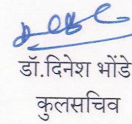 डॉ.दिनेश भोंडे
कुलसचिव